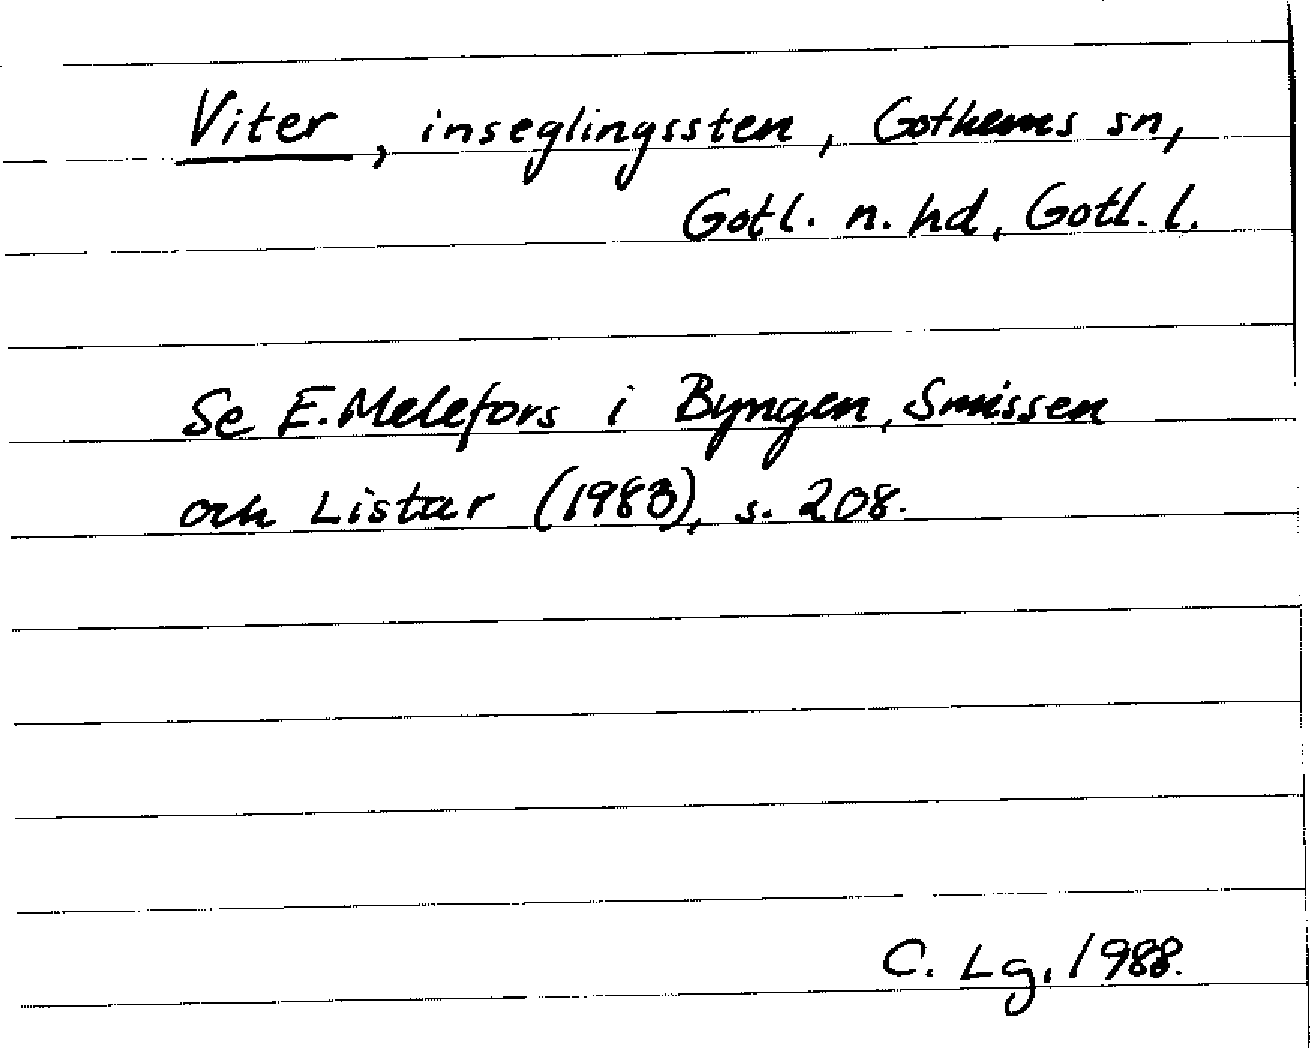 Viter, inseglingssten, Gothems sn,
Gotl. n. hd, Gotl. l.
Se E. Melefors i Byngen, Smissen
och Listar (1983), s. 208.
C. Lg. 1988.